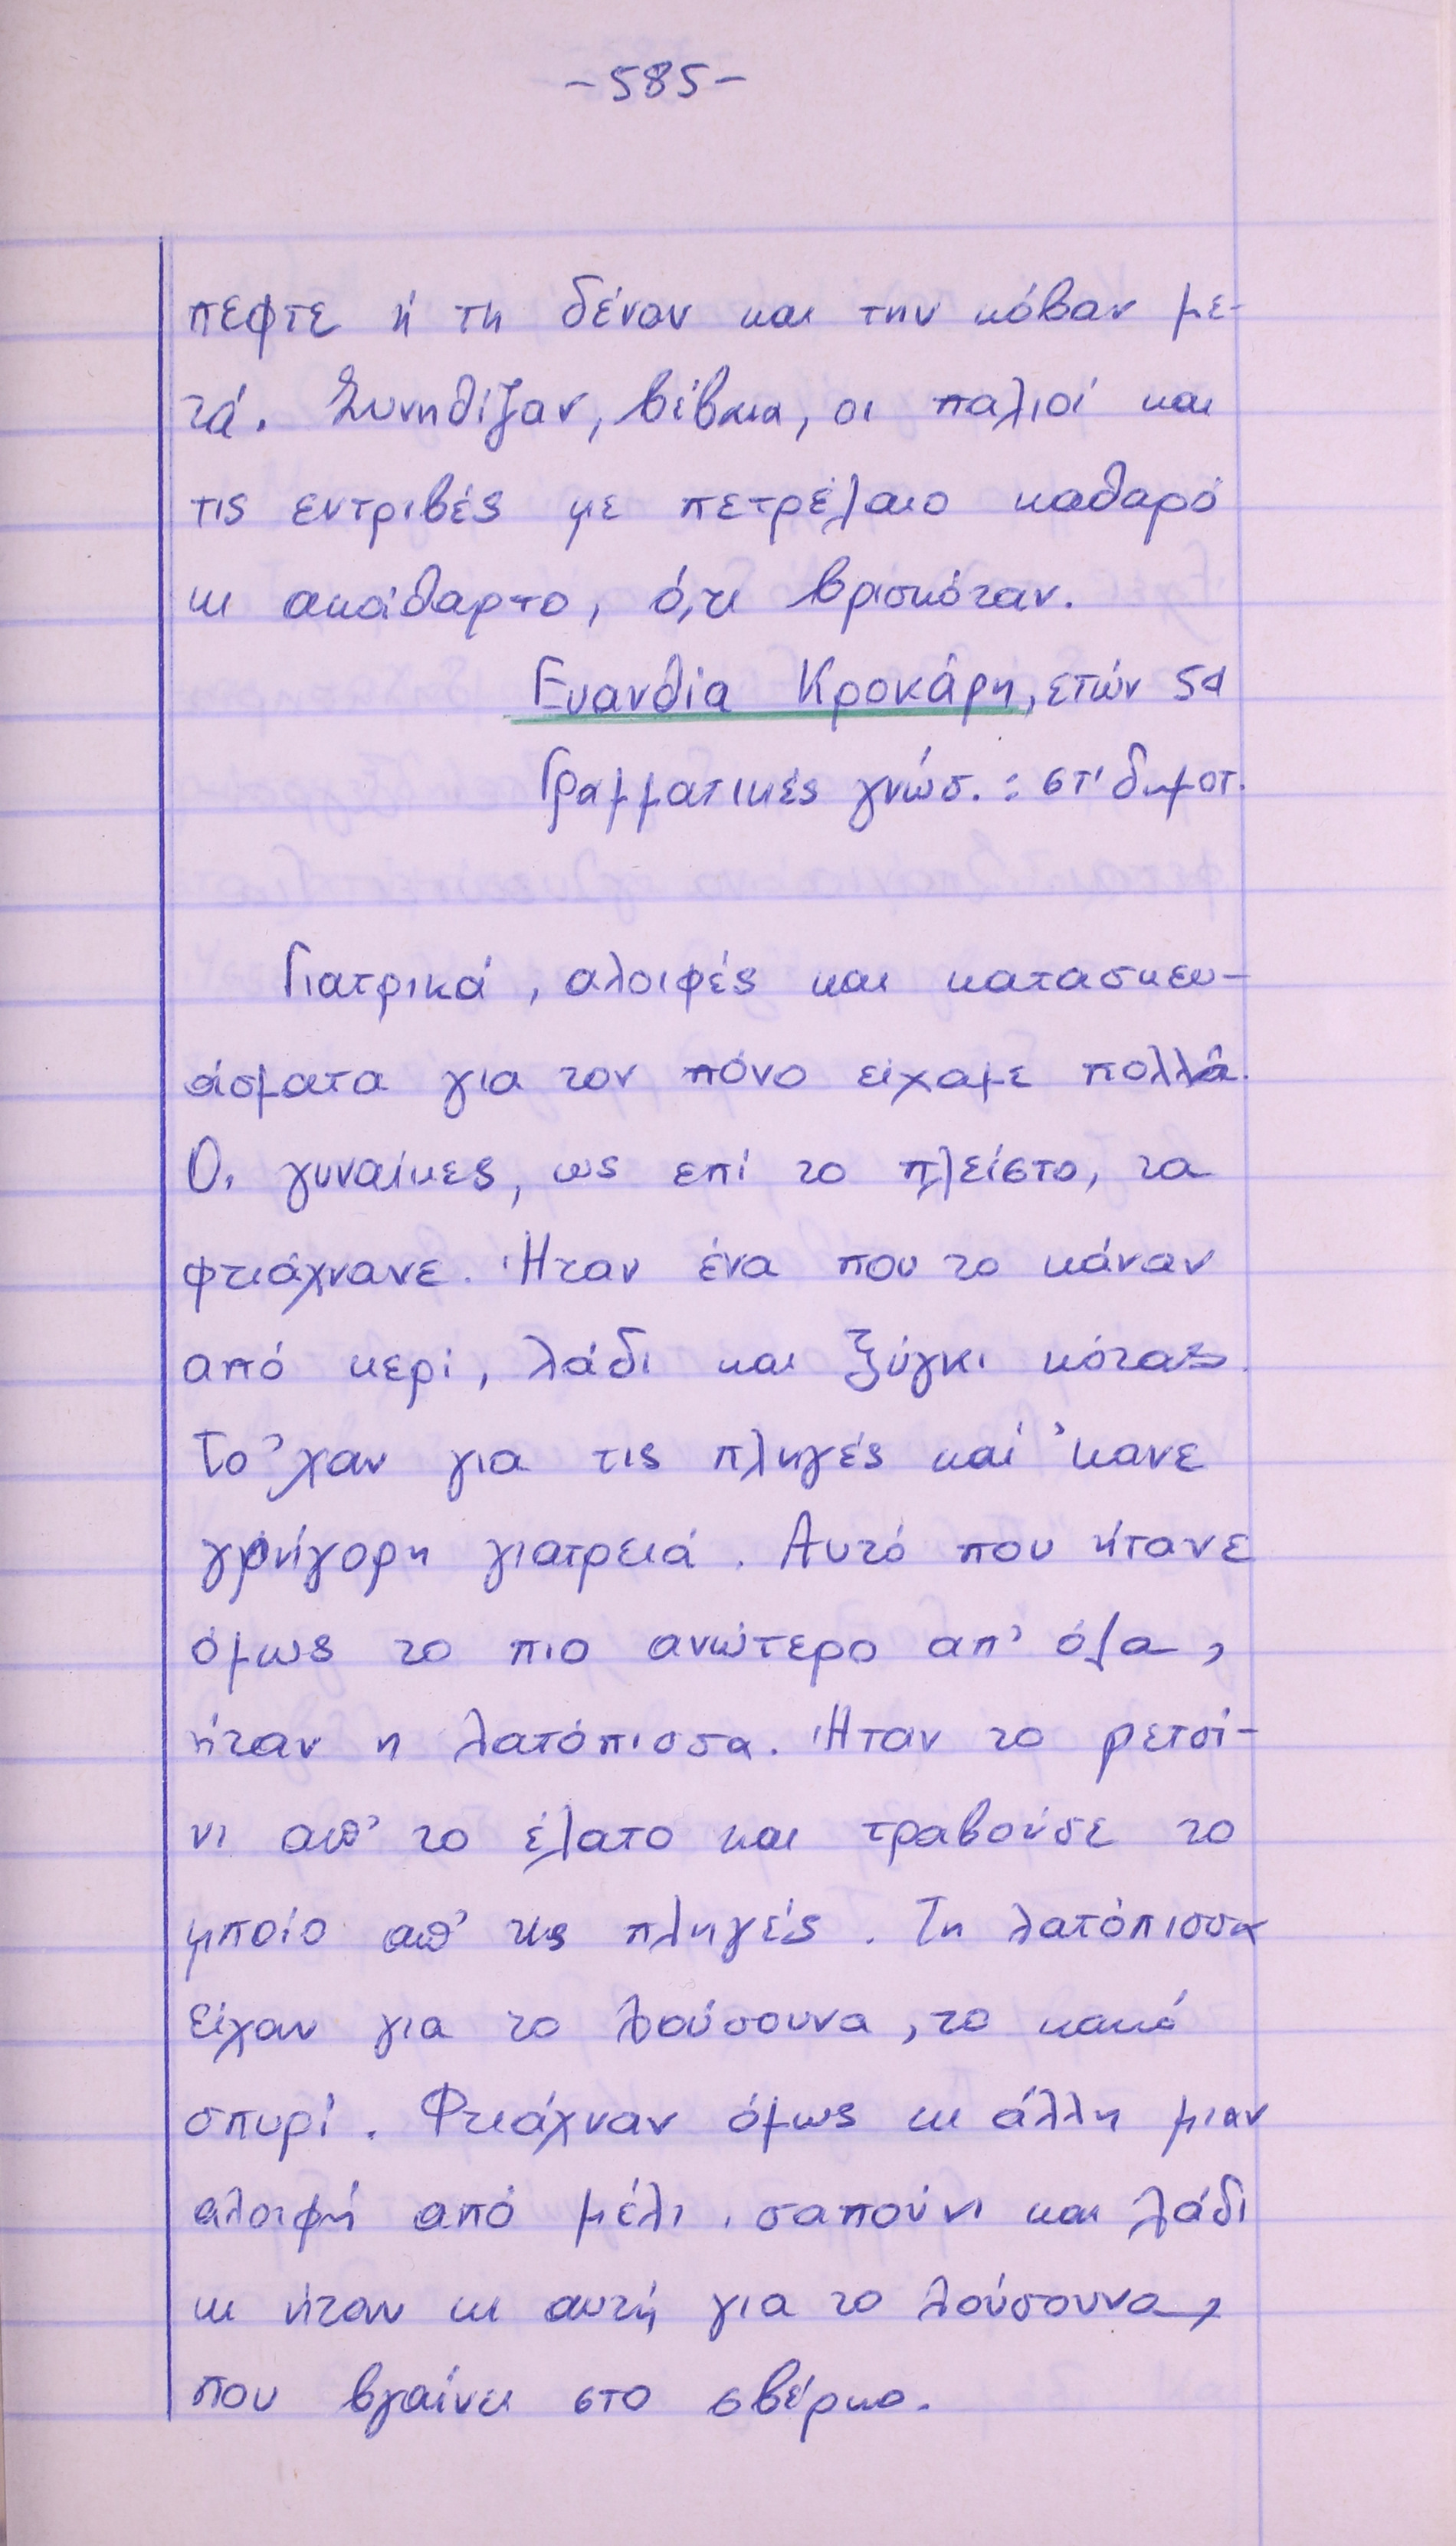 -585-
πεφτε ή τη δέναν και την κόβαν με-
τά. Συνηθίζαν, βέβαια, οι παλιοί και
τις εντριβές με πετρέλαιο καθαρό
κι ακάθαρτο, ό,τι βρισκόταν.
Ευανθία Κροκάρη, ετών 54
Γραμματικές γνώσ. : στ' δημοτ.
Γιατρικά, αλοιφές και κατασκευ-
άσματα για τον πόνο είχαμε πολλά.
Οι γυναίκες, ως επί το πλείστο, τα
φτιάχνανε. Ήταν ένα που το κάναν
από κερί, λάδι και ξύγκι κότας.
Το 'χαν για τις πληγές και 'κανε
γρήγορη γιατρειά. Αυτό που ήτανε
όμως το πιο ανώτερο απ' όλα,
ήταν η λατόπισσα. Ήταν το ρετσί-
νι απ' το έλατο και τραβούσε το
μποίο απ' τις πληγές. Τη λατόπισσα
είχαν για το λούσουνα, το κακό
σπυρί. Φτιάχναν όμως κι άλλη μιαν
αλοιφή από μέλι, σαπούνι και λάδι
κι ήταν κι αυτή για το λούσουνα,
που βγαίνει στο σβέρκο.